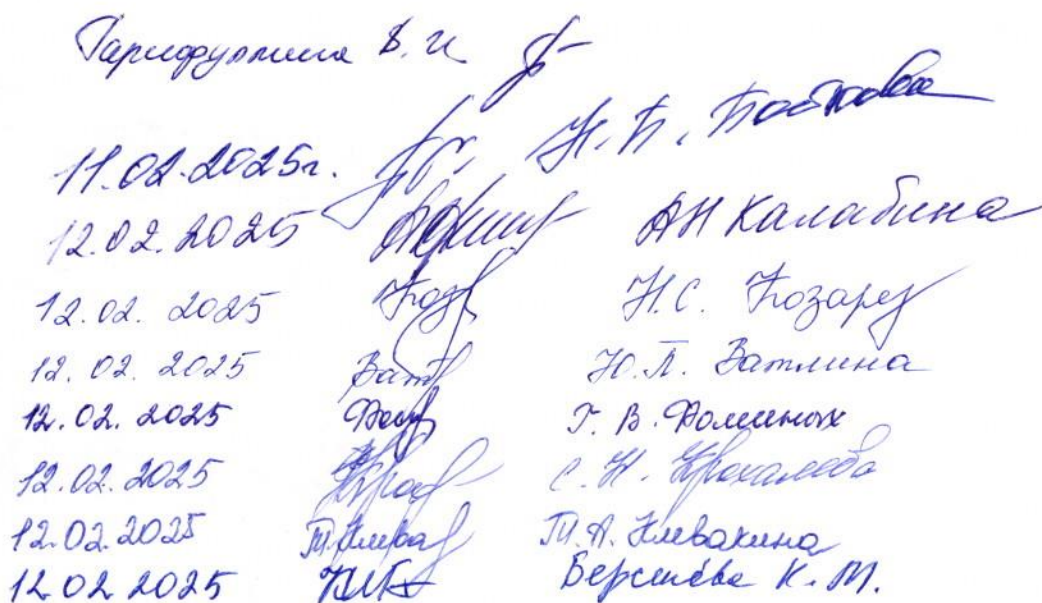 Гарифуллина В. И
11.02.2025г. Н. П. Постникова
12.02.2025 АН Калабина
12.02. 2025 Н.С. Козарез
12. 02. 2025 Ю.П. Затлина
12.02. 2025 Г. В. Фоминых
12.02. 2025 С. Н. Крохалева
12.02.2025 Т.А. Клевакина
12.02 2025 Берсенёва К. М.